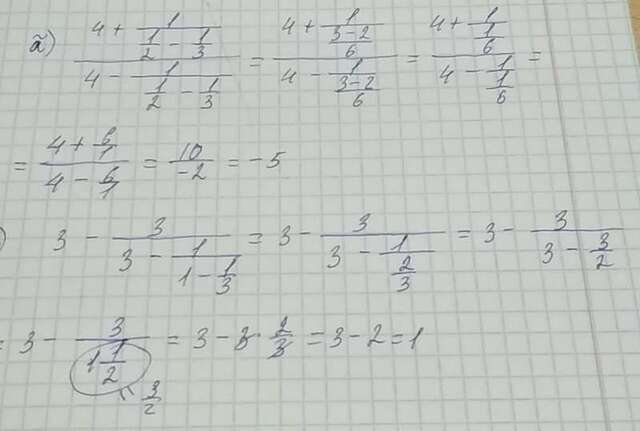 ã) (4 + 1/(1/2 - 1/3))/(4 - 1/(1/2 - 1/3)) = (4 + 1/((3-2)/6))/(4 - 1/((3-2)/6)) = (4 + 1/(1/6))/(4 - 1/(1/6)) =
= (4 + 6/1)/(4 - 6/1) = 10/-2 = -5
) 3 - 3/(3 - 1/(1 - 1/3)) = 3 - 3/(3 - 1/(2/3)) = 3 - 3/(3 - 3/2)
= 3 - 3/(1 1/2) = 3 - 3 · 2/3 = 3 - 2 = 1
= 3/2